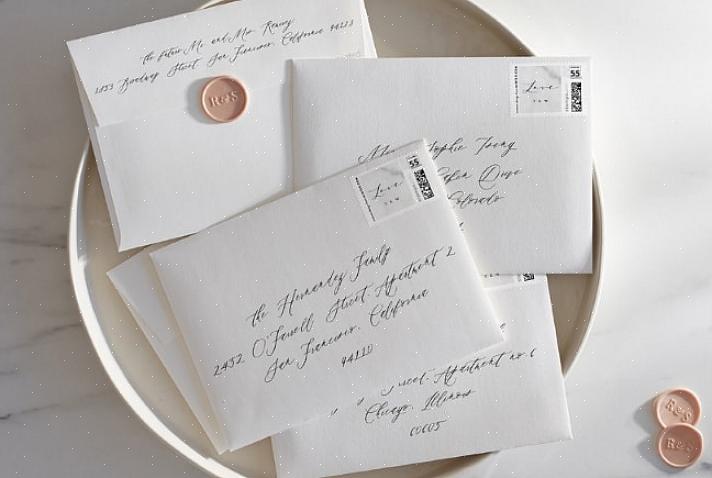 the future Mr. and Mrs. Raney
1253 Broadway Street, San Francisco, California 94123
R&S
Love
55
Sophie Young
Drive
Colorado
Love
55
the Hernandez Family
2452 O'Farrell Street, Apartment 2
San Francisco, California
94110
Street, Apartment no. 6
Chicago, Illinois
60605
R&S
R&S